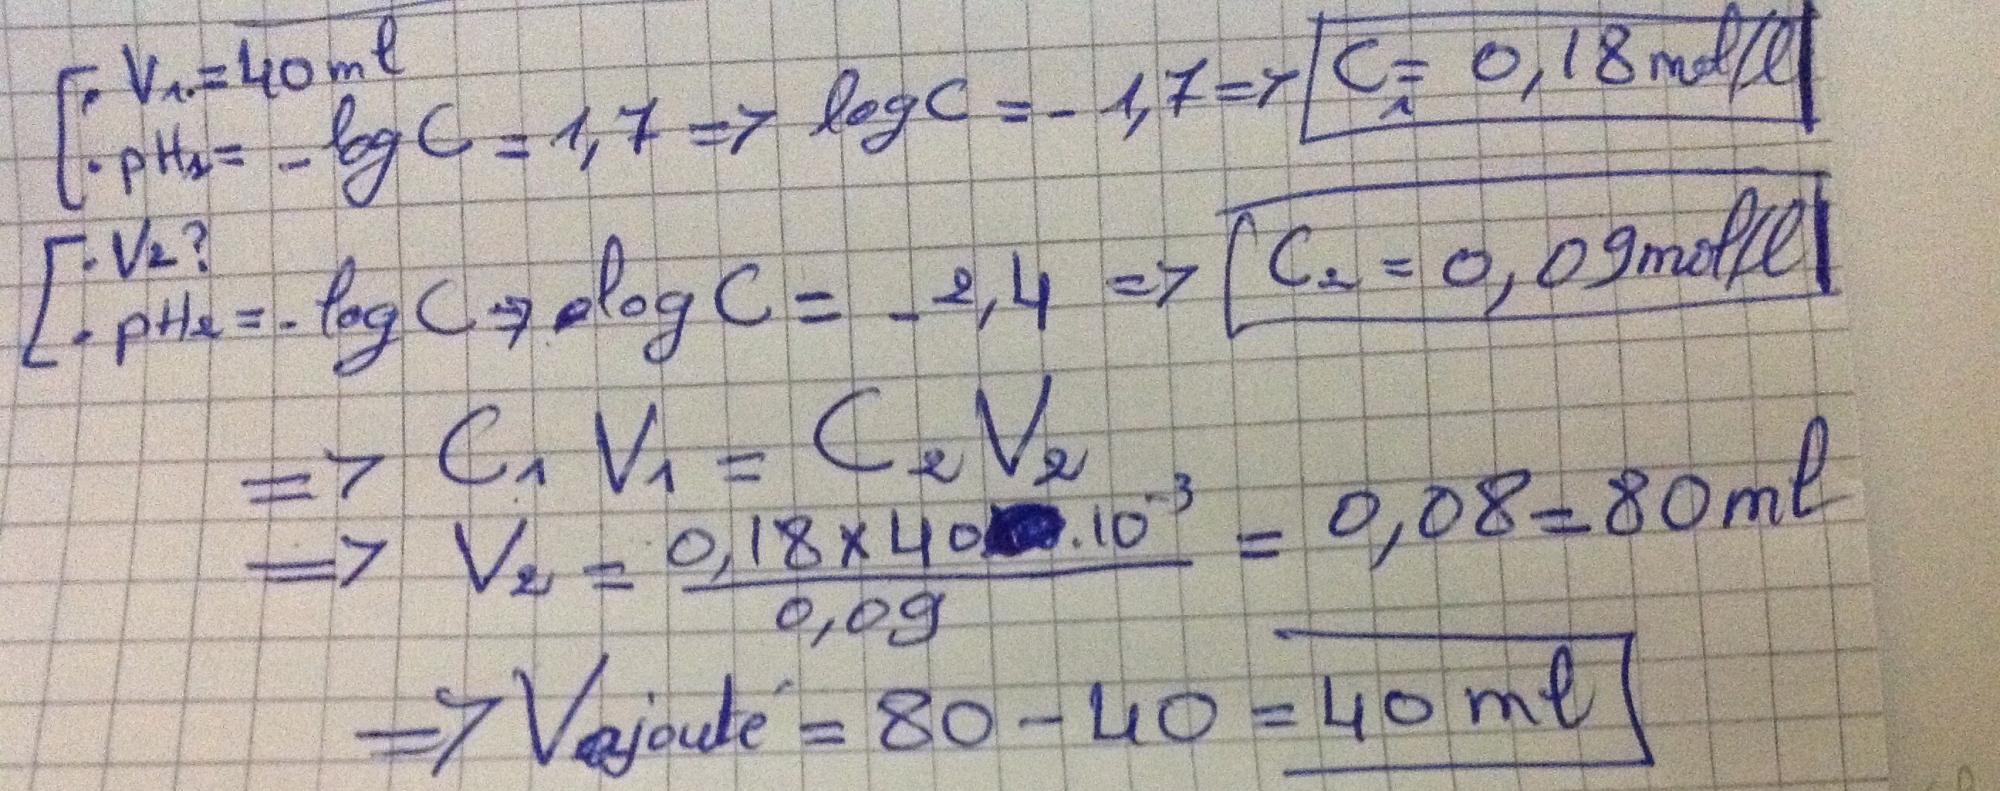 V₁ = 40 ml
pH₁ = - log C = 1,7 => log C = - 1,7 => C₁ = 0,18 mol/l
V₂ ?
pH₂ = - log C => log C = - 2,4 => C₂ = 0,09 mol/l
=> C₁ V₁ = C₂ V₂
=> V₂ = 0,18 x 40 .10⁻³ / 0,09 = 0,08 = 80 ml
=> Vajouté = 80 - 40 = 40 ml